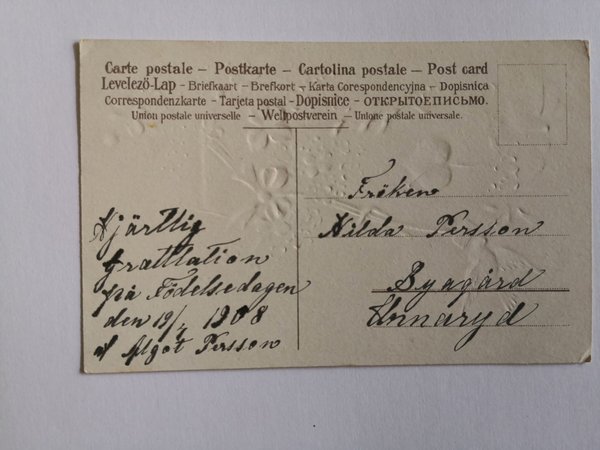 Carte postale – Postkarte – Cartolina postale – Post card
Levelező-Lap – Briefkaart – Brefkort – Karta Corespondencyjna – Dopisnica
Correspondenzkarte – Tarjeta postal – Dopisnice – ОТКРЫТОЕПИСЬМО.
Union postale universelle – Weltpostverein – Unione postale universale.
Hjärtlig
Grattlation
på Födelsedagen
den 19/ 1908
af Algot Persson
Fröken
Hilda Persson
Byagård
Unnaryd